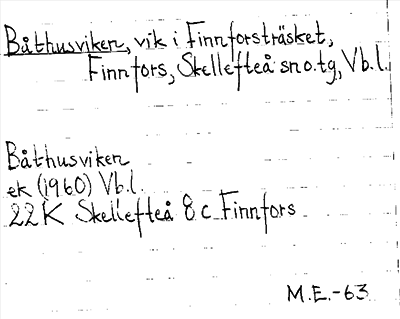 Båthusviken, vik i Finnforsträsket,
Finnfors, Skellefteå sn o. tg, Vb. l.
Båthusviken
ek (1960) Vb. l.
22 K Skellefteå 8 c Finnfors
M.E.-63